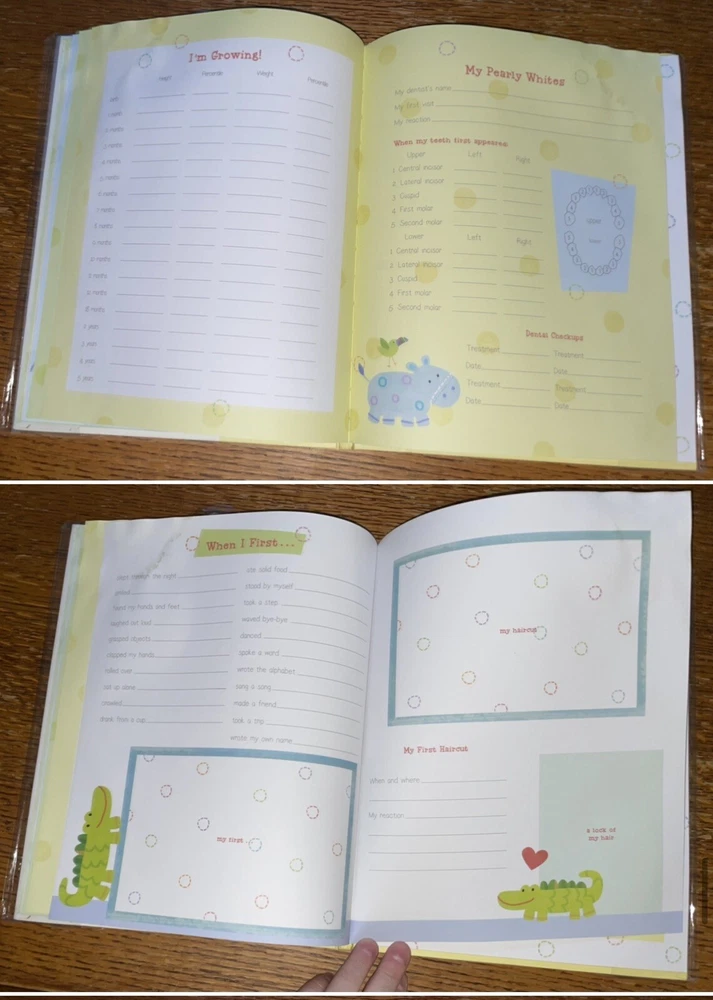 I'm Growing!
Height Percentile Weight Percentile
2 months
3 months
4 months
5 months
6 months
7 months
8 months
9 months
10 months
11 months
12 months
18 months
2 years
3 years
4 years
5 years
My Pearly Whites
My dentist's name
My first visit
My reaction
When my teeth first appeared:
Upper Left Right
1. Central incisor
2. Lateral incisor
3. Cuspid
4. First molar
5. Second molar
Lower Left Right
1. Central incisor
2. Lateral incisor
3. Cuspid
4. First molar
5. Second molar
Upper
lower
Dental Checkups
Treatment Treatment
Date Date
Treatment Treatment
Date Date
When I First...
slept through the night
found my hands and feet
laughed out loud
grasped objects
clapped my hands
rolled over
sat up alone
crawled
drank from a cup
ate solid food
stood by myself
took a step
waved bye-bye
danced
spoke a word
wrote the alphabet
sang a song
made a friend
took a trip
wrote my own name
my first
my haircut
My First Haircut
When and where
My reaction
a lock of
my hair